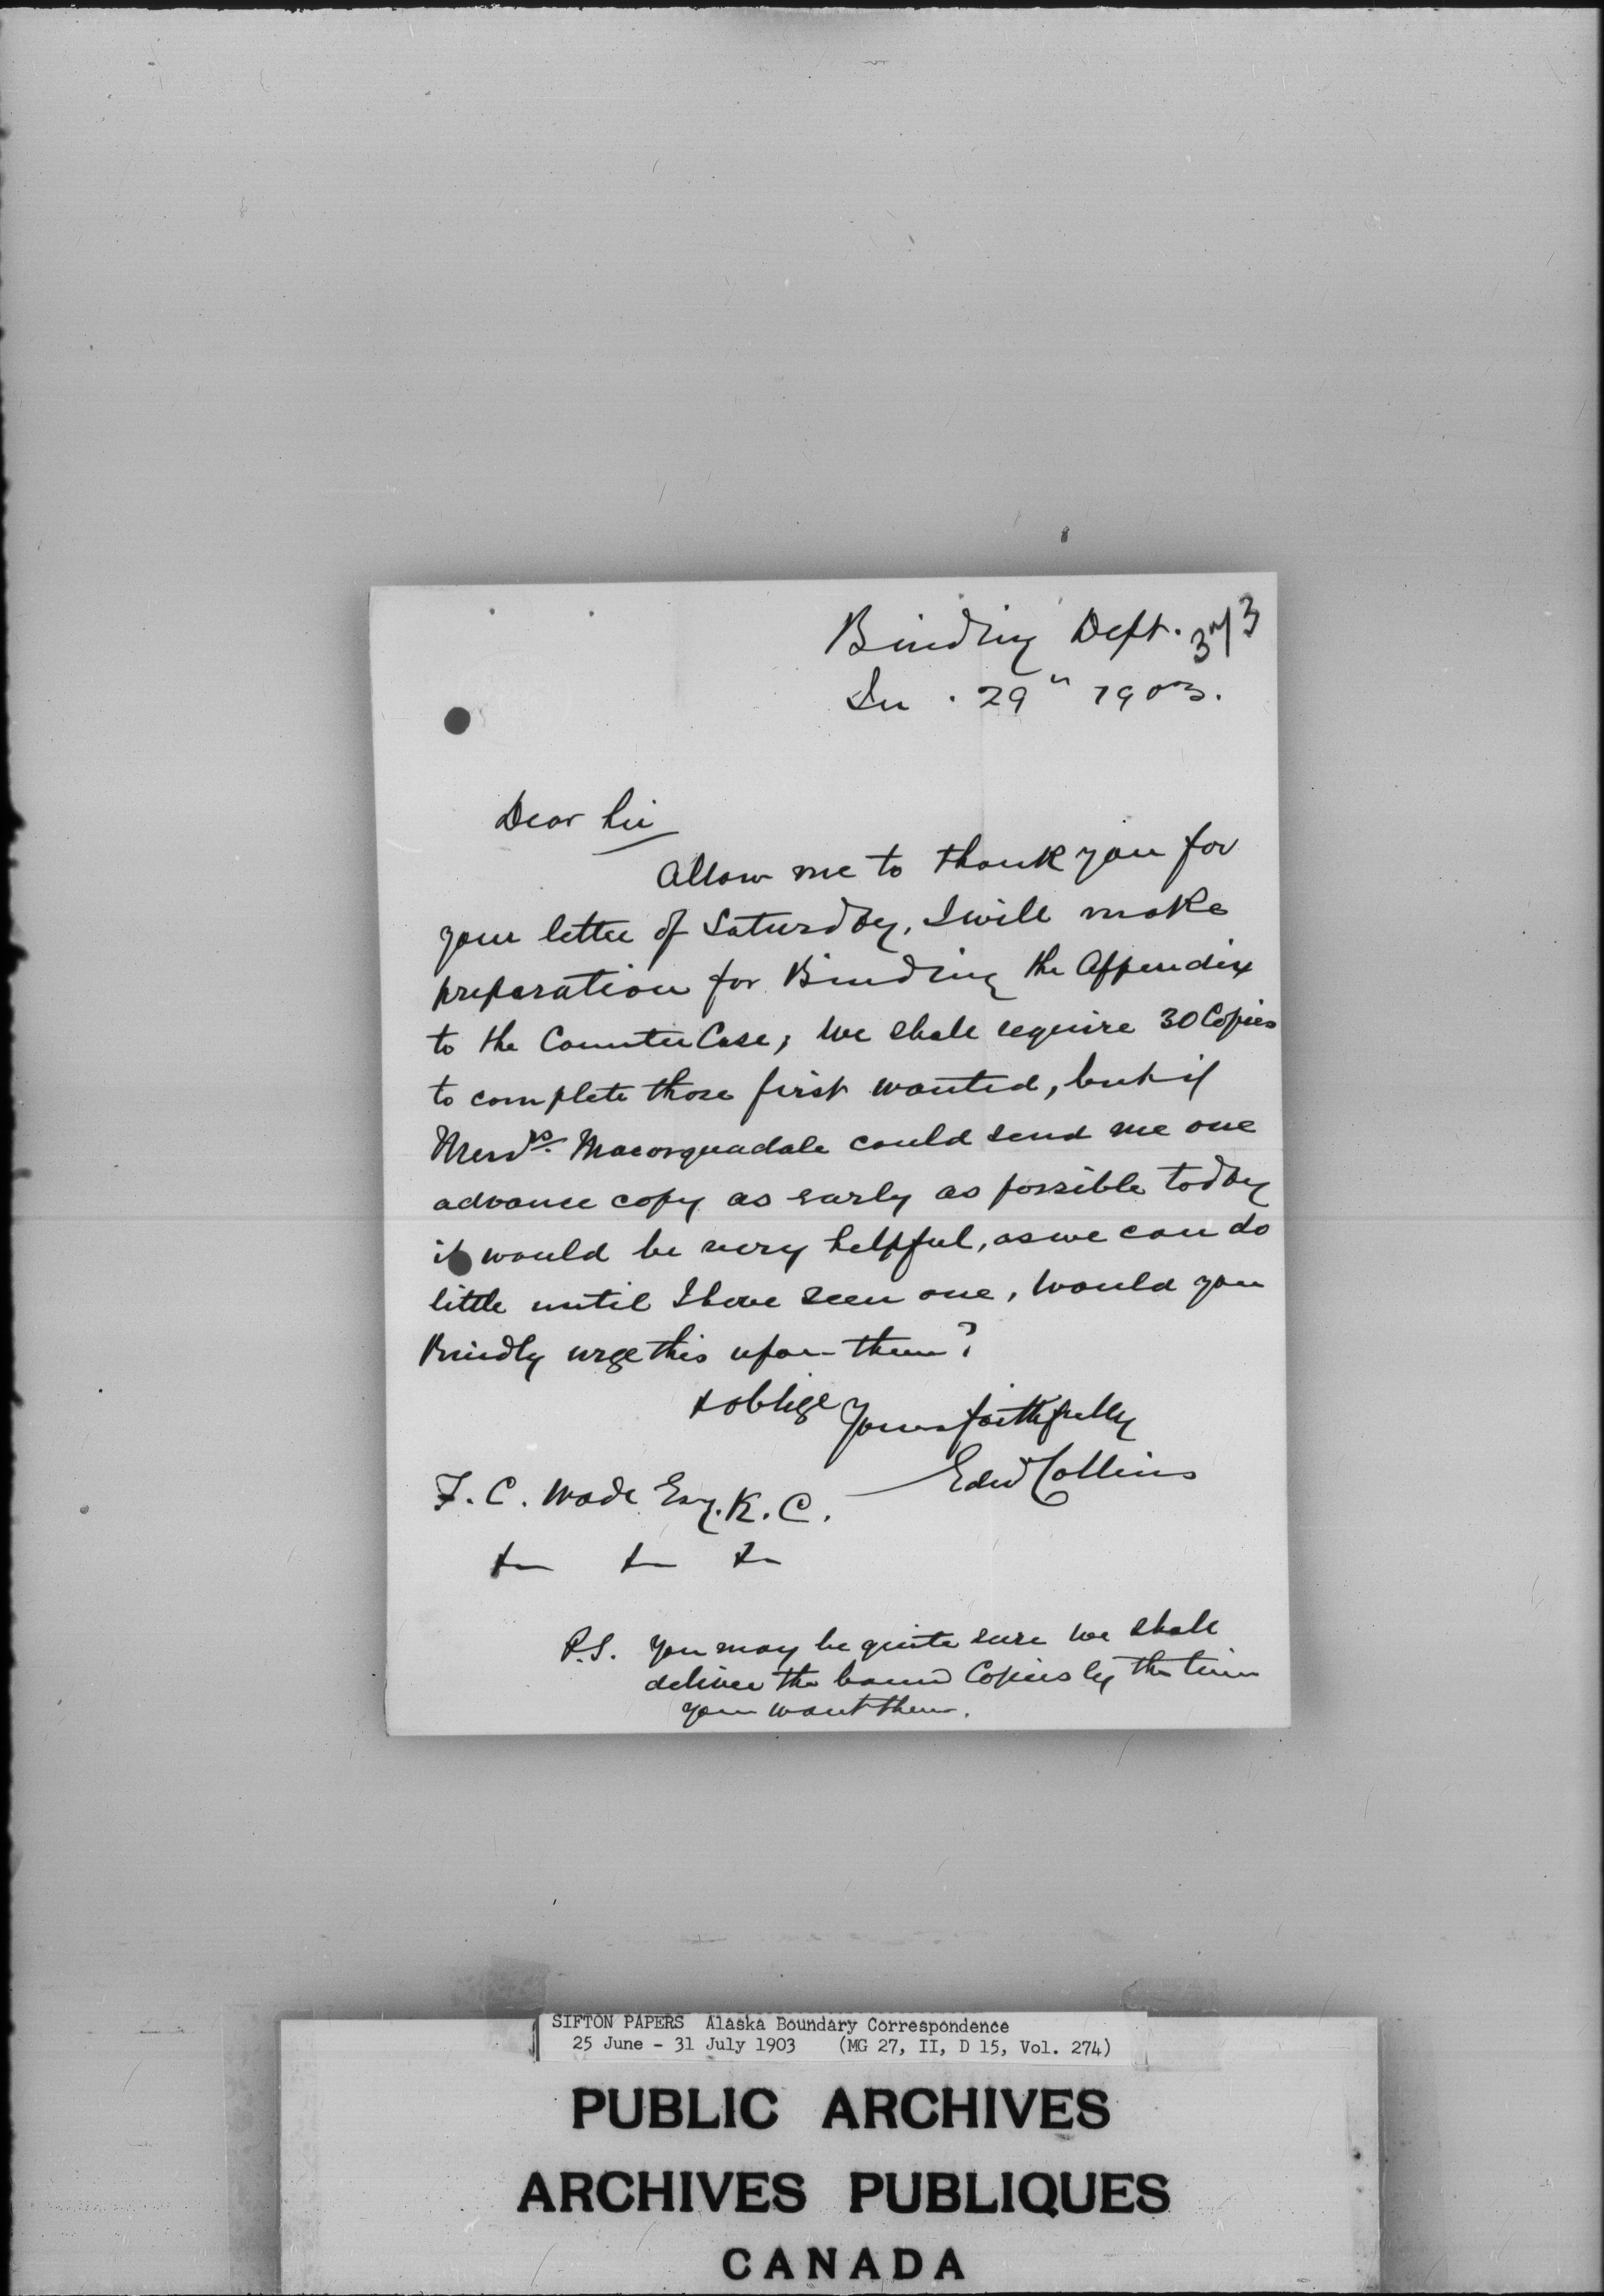 Binding Dept. 373
Ju . 29" 1903.
Dear Sir
Allow me to thank you for
your letter of Saturday, I will make
preparation for Binding the Appendix
to the Counter Case; We shall require 30 Copies
to complete those first wanted, but if
Messrs. Macorquadale could send me one
advance copy as early as possible today
it would be very helpful, as we can do
little until I have seen one, Would you
Kindly urge this upon them?
& oblige Yours faithfully
Edwd Collins
F. C. Wade Esq. K. C.
& & &
P.S. You may be quite sure we shall
deliver the bound Copies by the time
you want them.
SIFTON PAPERS Alaska Boundary Correspondence
25 June - 31 July 1903 (MG 27, II, D 15, Vol. 274)
PUBLIC ARCHIVES
ARCHIVES PUBLIQUES
CANADA